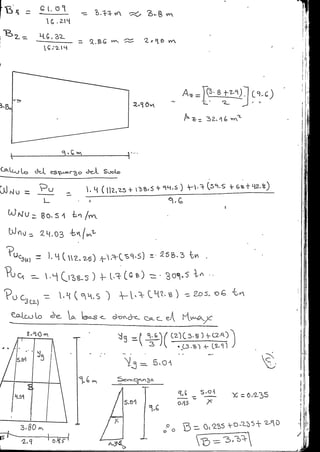 B1 = 61.09 / 16.214 = 3.77 m ≈ 3.8 m
B2 = 46.32 / 16.214 = 2.86 m ≈ 2.90 m
3.8 2.90m
9.6m
Az = [(3.8+2.9) / 2] (9.6)
Az = 32.16 m²
Calculo del esfuerzo del Suelo
WNU = Pu / L = 1.4 (112.25 + 138.5 + 94.5) + 1.7 (59.5 + 68 + 42.8) / 9.6
WNU = 80.51 tn/m
Wnu = 24.03 tn/m²
PuCg(1) = 1.4 (112.25) + 1.7 (59.5) = 258.3 tn
PuCg = 1.4 (138.5) + 1.7 (68) = 309.5 tn
PuCg(2) = 1.4 (94.5) + 1.7 (42.8) = 205.06 tn
Calculo de la base donde cae el Mmax
2.90m
yg 5.01 B 4.59 9.6m
3.80m
2.9 0.45
yg = (9.6 / 3) ((2)(3.8)+(2.9) / (3.8)+(2.9))
yg = 5.01
Semejanza
5.01 9.6 x 0.45
9.6 / 0.45 = 5.01 / x x = 0.235
∴ B = 0.235 + 0.235 + 2.90
B = 3.37